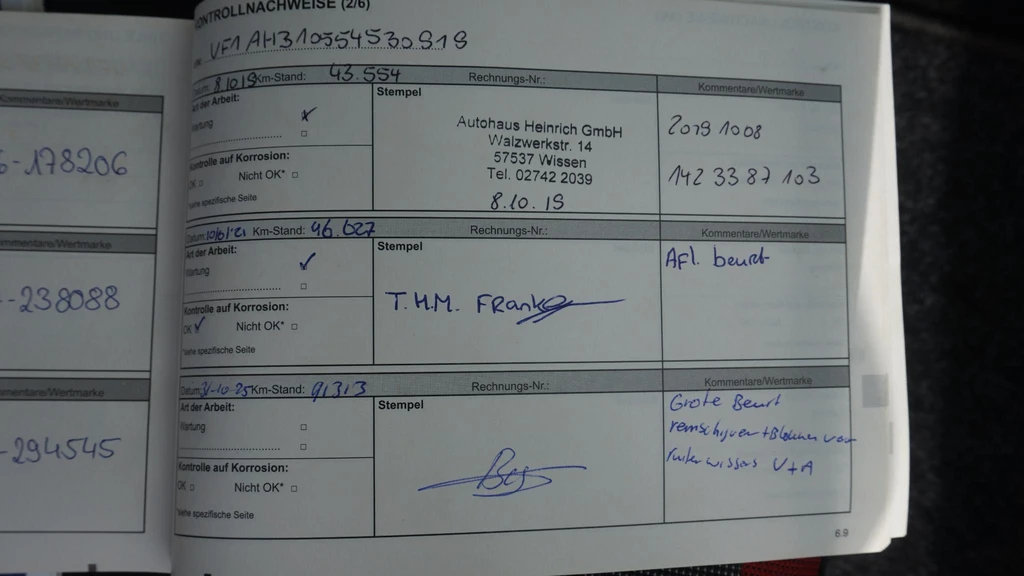 Kommentare/Wertmarke
-178206
Kommentare/Wertmarke
-238088
Kommentare/Wertmarke
-294545
KONTROLLNACHWEISE (2/6)
VF1AH310554530919
Datum: 8/10/19 Km-Stand: 43.554 Rechnungs-Nr.: Kommentare/Wertmarke
Art der Arbeit:
Wartung
Kontrolle auf Korrosion:
OK Nicht OK*
*siehe spezifische Seite
Stempel
Autohaus Heinrich GmbH
Walzwerkstr. 14
57537 Wissen
Tel. 02742 2039
8.10.19
20191008
142 33 87 103
Datum: 10/6/'21 Km-Stand: 46.627 Rechnungs-Nr.: Kommentare/Wertmarke
Art der Arbeit:
Wartung
Kontrolle auf Korrosion:
OK Nicht OK*
*siehe spezifische Seite
Stempel
T.H.M. Franke
Afl. beurt
Datum: 31-10-25 Km-Stand: 91313 Rechnungs-Nr.: Kommentare/Wertmarke
Art der Arbeit:
Wartung
Kontrolle auf Korrosion:
OK Nicht OK*
*siehe spezifische Seite
Stempel
Grote Beurt
remschijven + Blokken voor
ruitenwissers V+A
6.9